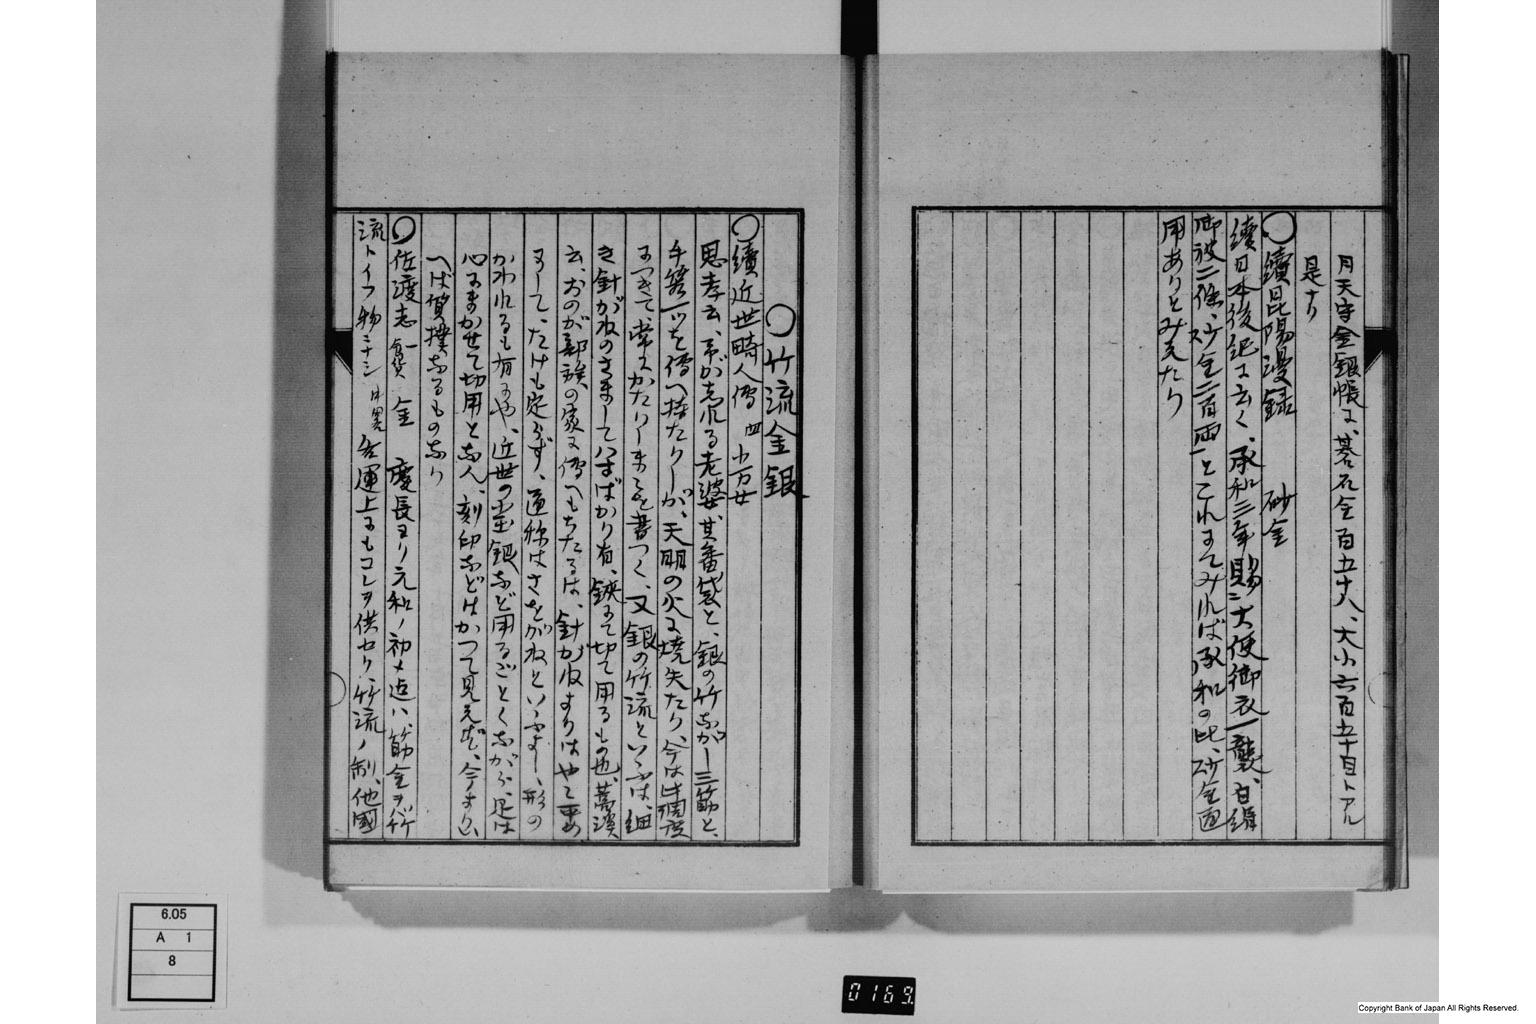 月天守金銀帳に、碁石金百五十八、大小六百五十目トアル
是ナリ
〇續昆陽漫録　砂金
續日本後紀に云く、承和三年賜二大使御衣一襲、白絹
御被二條、沙金二百両一とこれまでみれば承和の比、砂金通
用ありとみえたり
〇竹流金銀
〇續近世畸人傳 四 小万女
思孝云、予が志れる老婆、其番袋と、銀の竹ながし三筋と、
手箱一ツを傳へ持たりしが、天明の火に焼失たり、今は此調度
につきて、常にかたりしまゝを書つく、又銀の竹流といふは、細
き針がねのさまして八寸ばかり有、鋏にて切て用るもの也、蒿溪
云、おのが郭族の家に傳へもちたるは、針がねよりはやゝ平め
にして、たけも定らず、通称はさをがねといふよし、形の
かわれるも有にや、近世の豆銀など用るごとくしながら、是は
心にまかせて切用となん、刻印などはかつて見えず、今より
へば質撲なるものなり
〇佐渡志 食貨 金 慶長ヨリ元和ノ初メ迠ハ、筋金ヲ竹
流トイフ物ニナシ 中畧 公運上にもコレヲ供セリ、竹流ノ制、他國
6.05
A 1
8
0169
Copyright Bank of Japan All Rights Reserved.